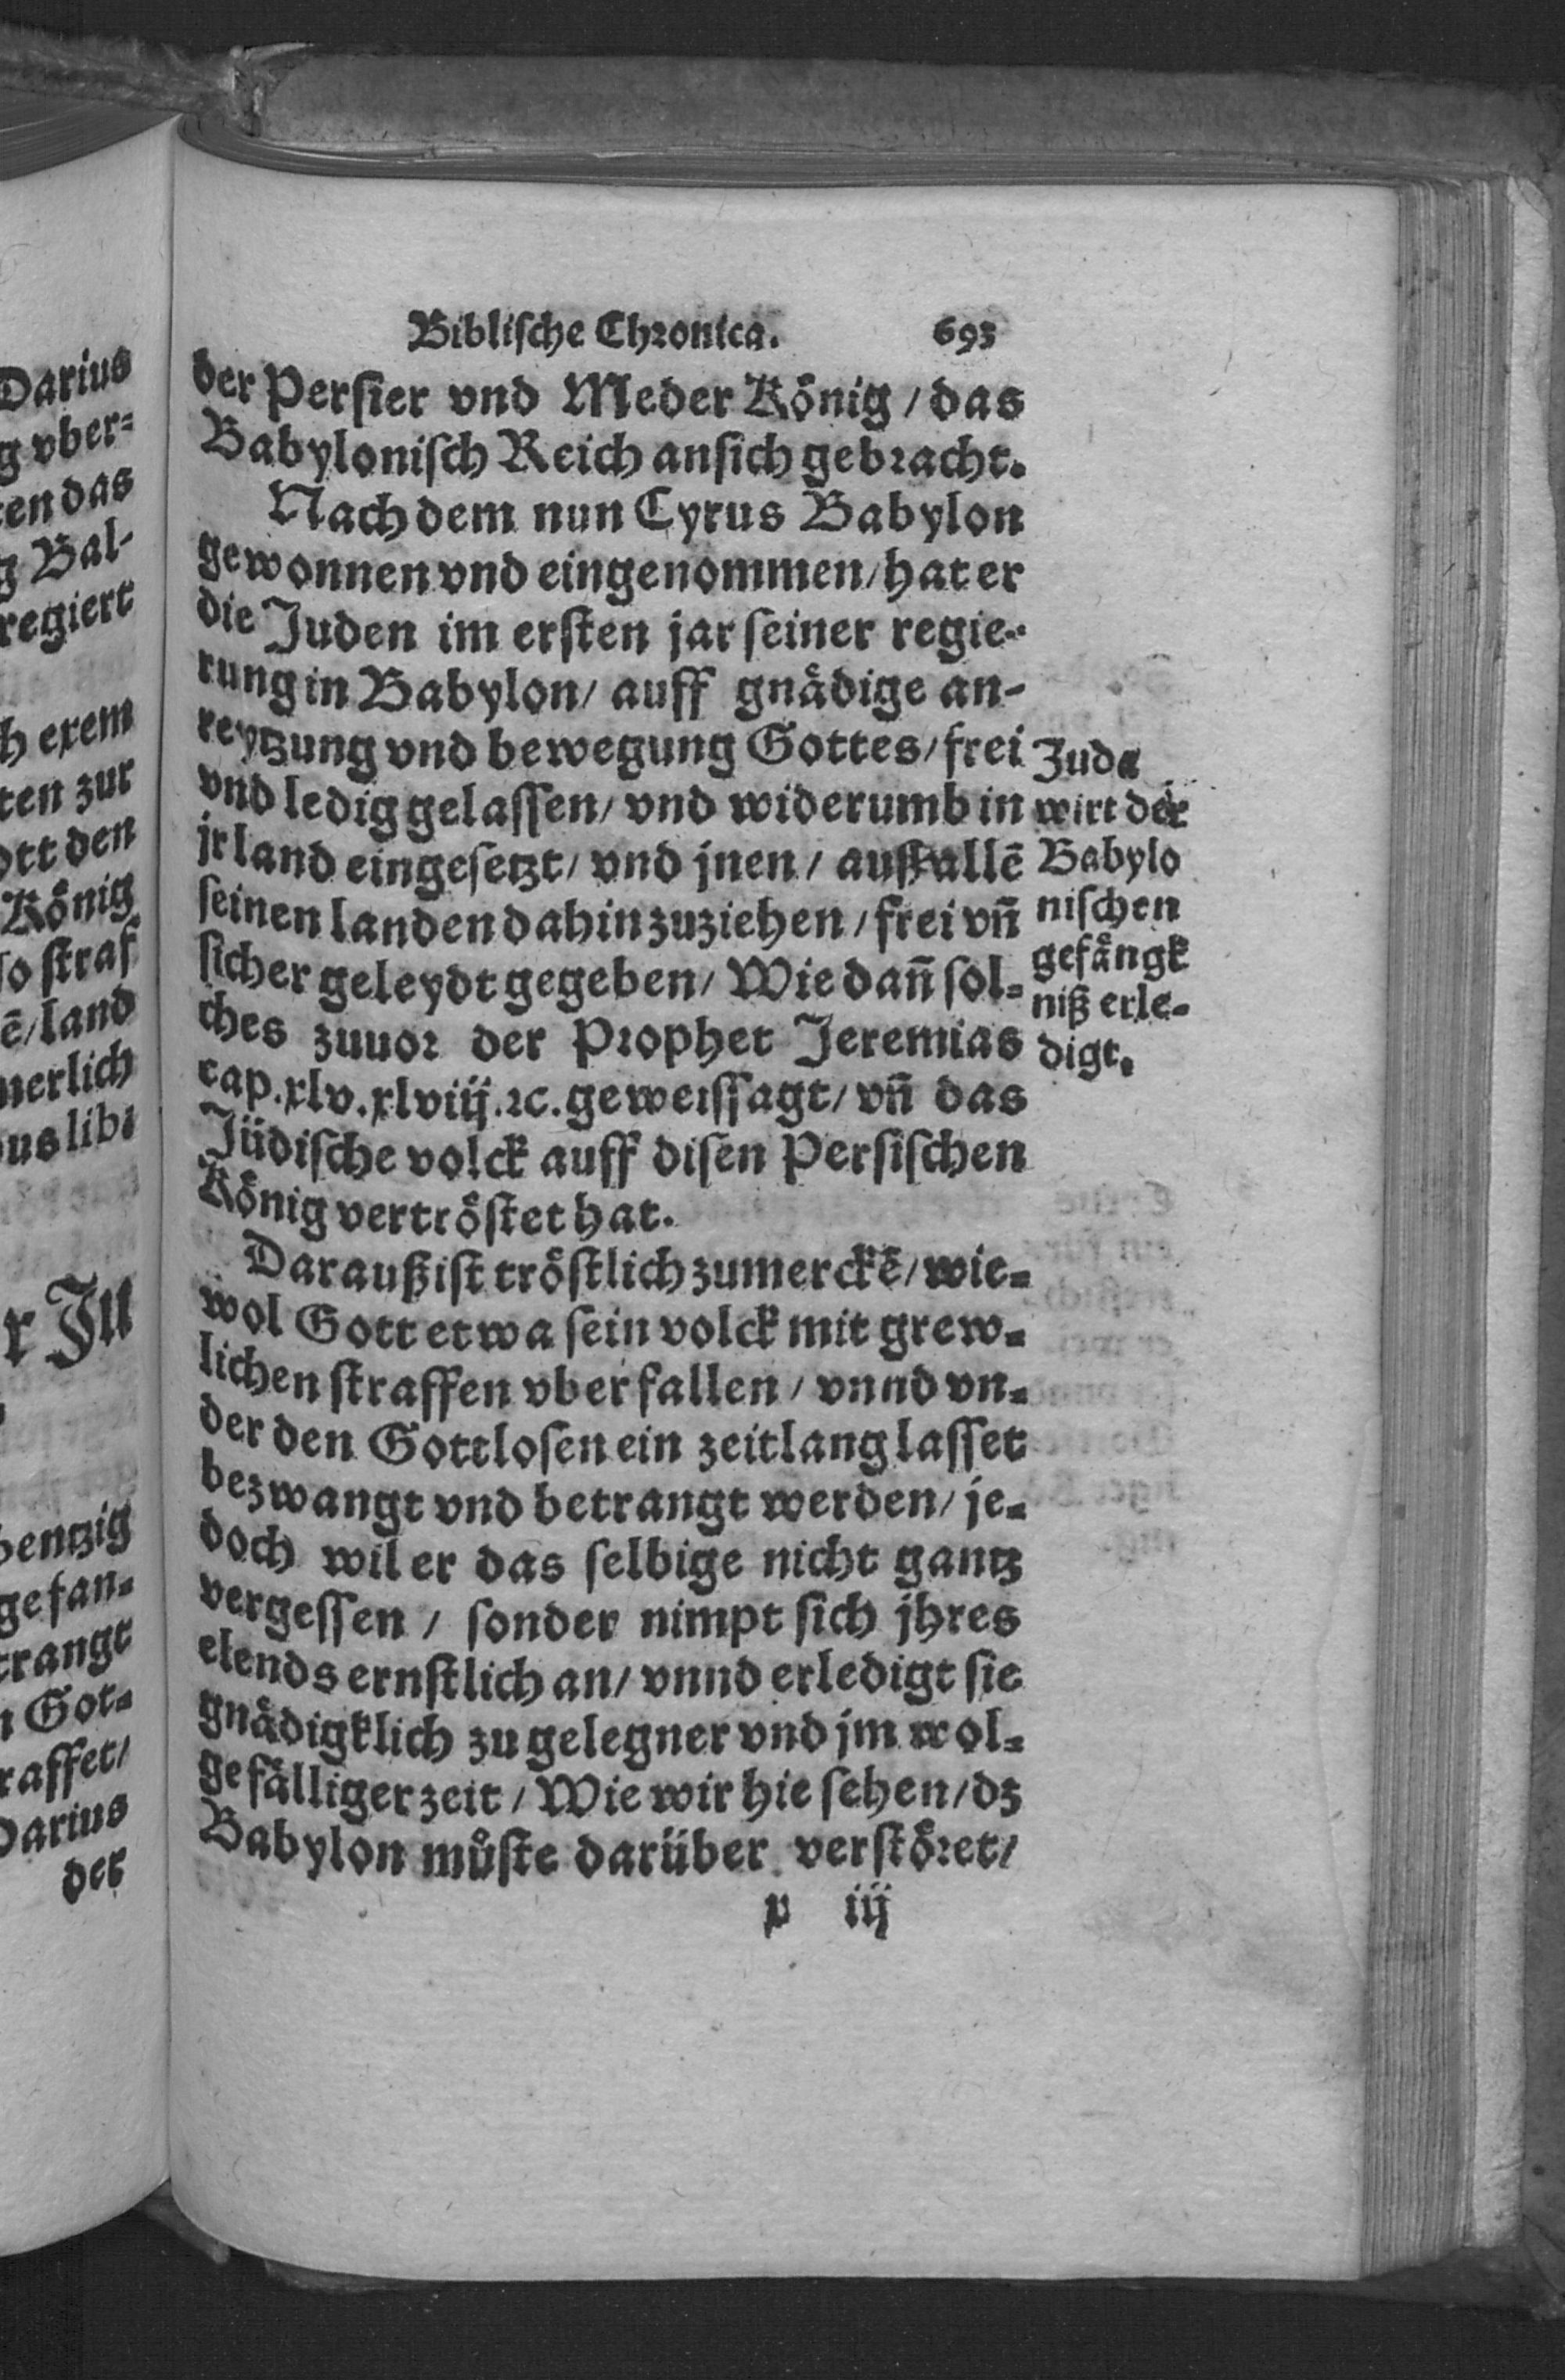 Biblische Chronica. 693
der Persier vnd Meder König / das
Babylonisch Reich ansich gebracht.
Nach dem nun Cyrus Babylon
gewonnen vnd eingenommen / hat er
die Juden im ersten jar seiner regie-
rung in Babylon / auff gnädige an-
reytzung vnd bewegung Gottes / frei
vnd ledig gelassen / vnd widerumb in
jr land eingesetzt / vnd jnen / auß allē
seinen landen dahin zuziehen / frei vn̄
sicher geleydt gegeben / Wie dan̄ sol-
ches zuuor der Prophet Jeremias
cap. xlv. xlviij. ꝛc. geweissagt / vn̄ das
Jüdische volck auff disen Persischen
König vertröstet hat.
Darauß ist tröstlich zumerckē / wie-
wol Gott etwa sein volck mit grew-
lichen straffen vberfallen / vnnd vn-
der den Gottlosen ein zeitlang lasset
bezwangt vnd betrangt werden / je-
doch wil er das selbige nicht gantz
vergessen / sonder nimpt sich jhres
elends ernstlich an / vnnd erledigt sie
gnädigklich zu gelegner vnd jm wol-
gefälliger zeit / Wie wir hie sehen / dz
Babylon můste darüber verstöret /
p iij
Juda
wirt der
Babylo
nischen
gefängk
niß erle-
digt.
Darius
g vber-
ten das
g Bal-
regiert
h exem
ten zur
ott den
König
so straf
ē / land
nerlich
us lib.
r Ju
bentzig
gefan-
trangt
n Got-
raffet /
Darius
der